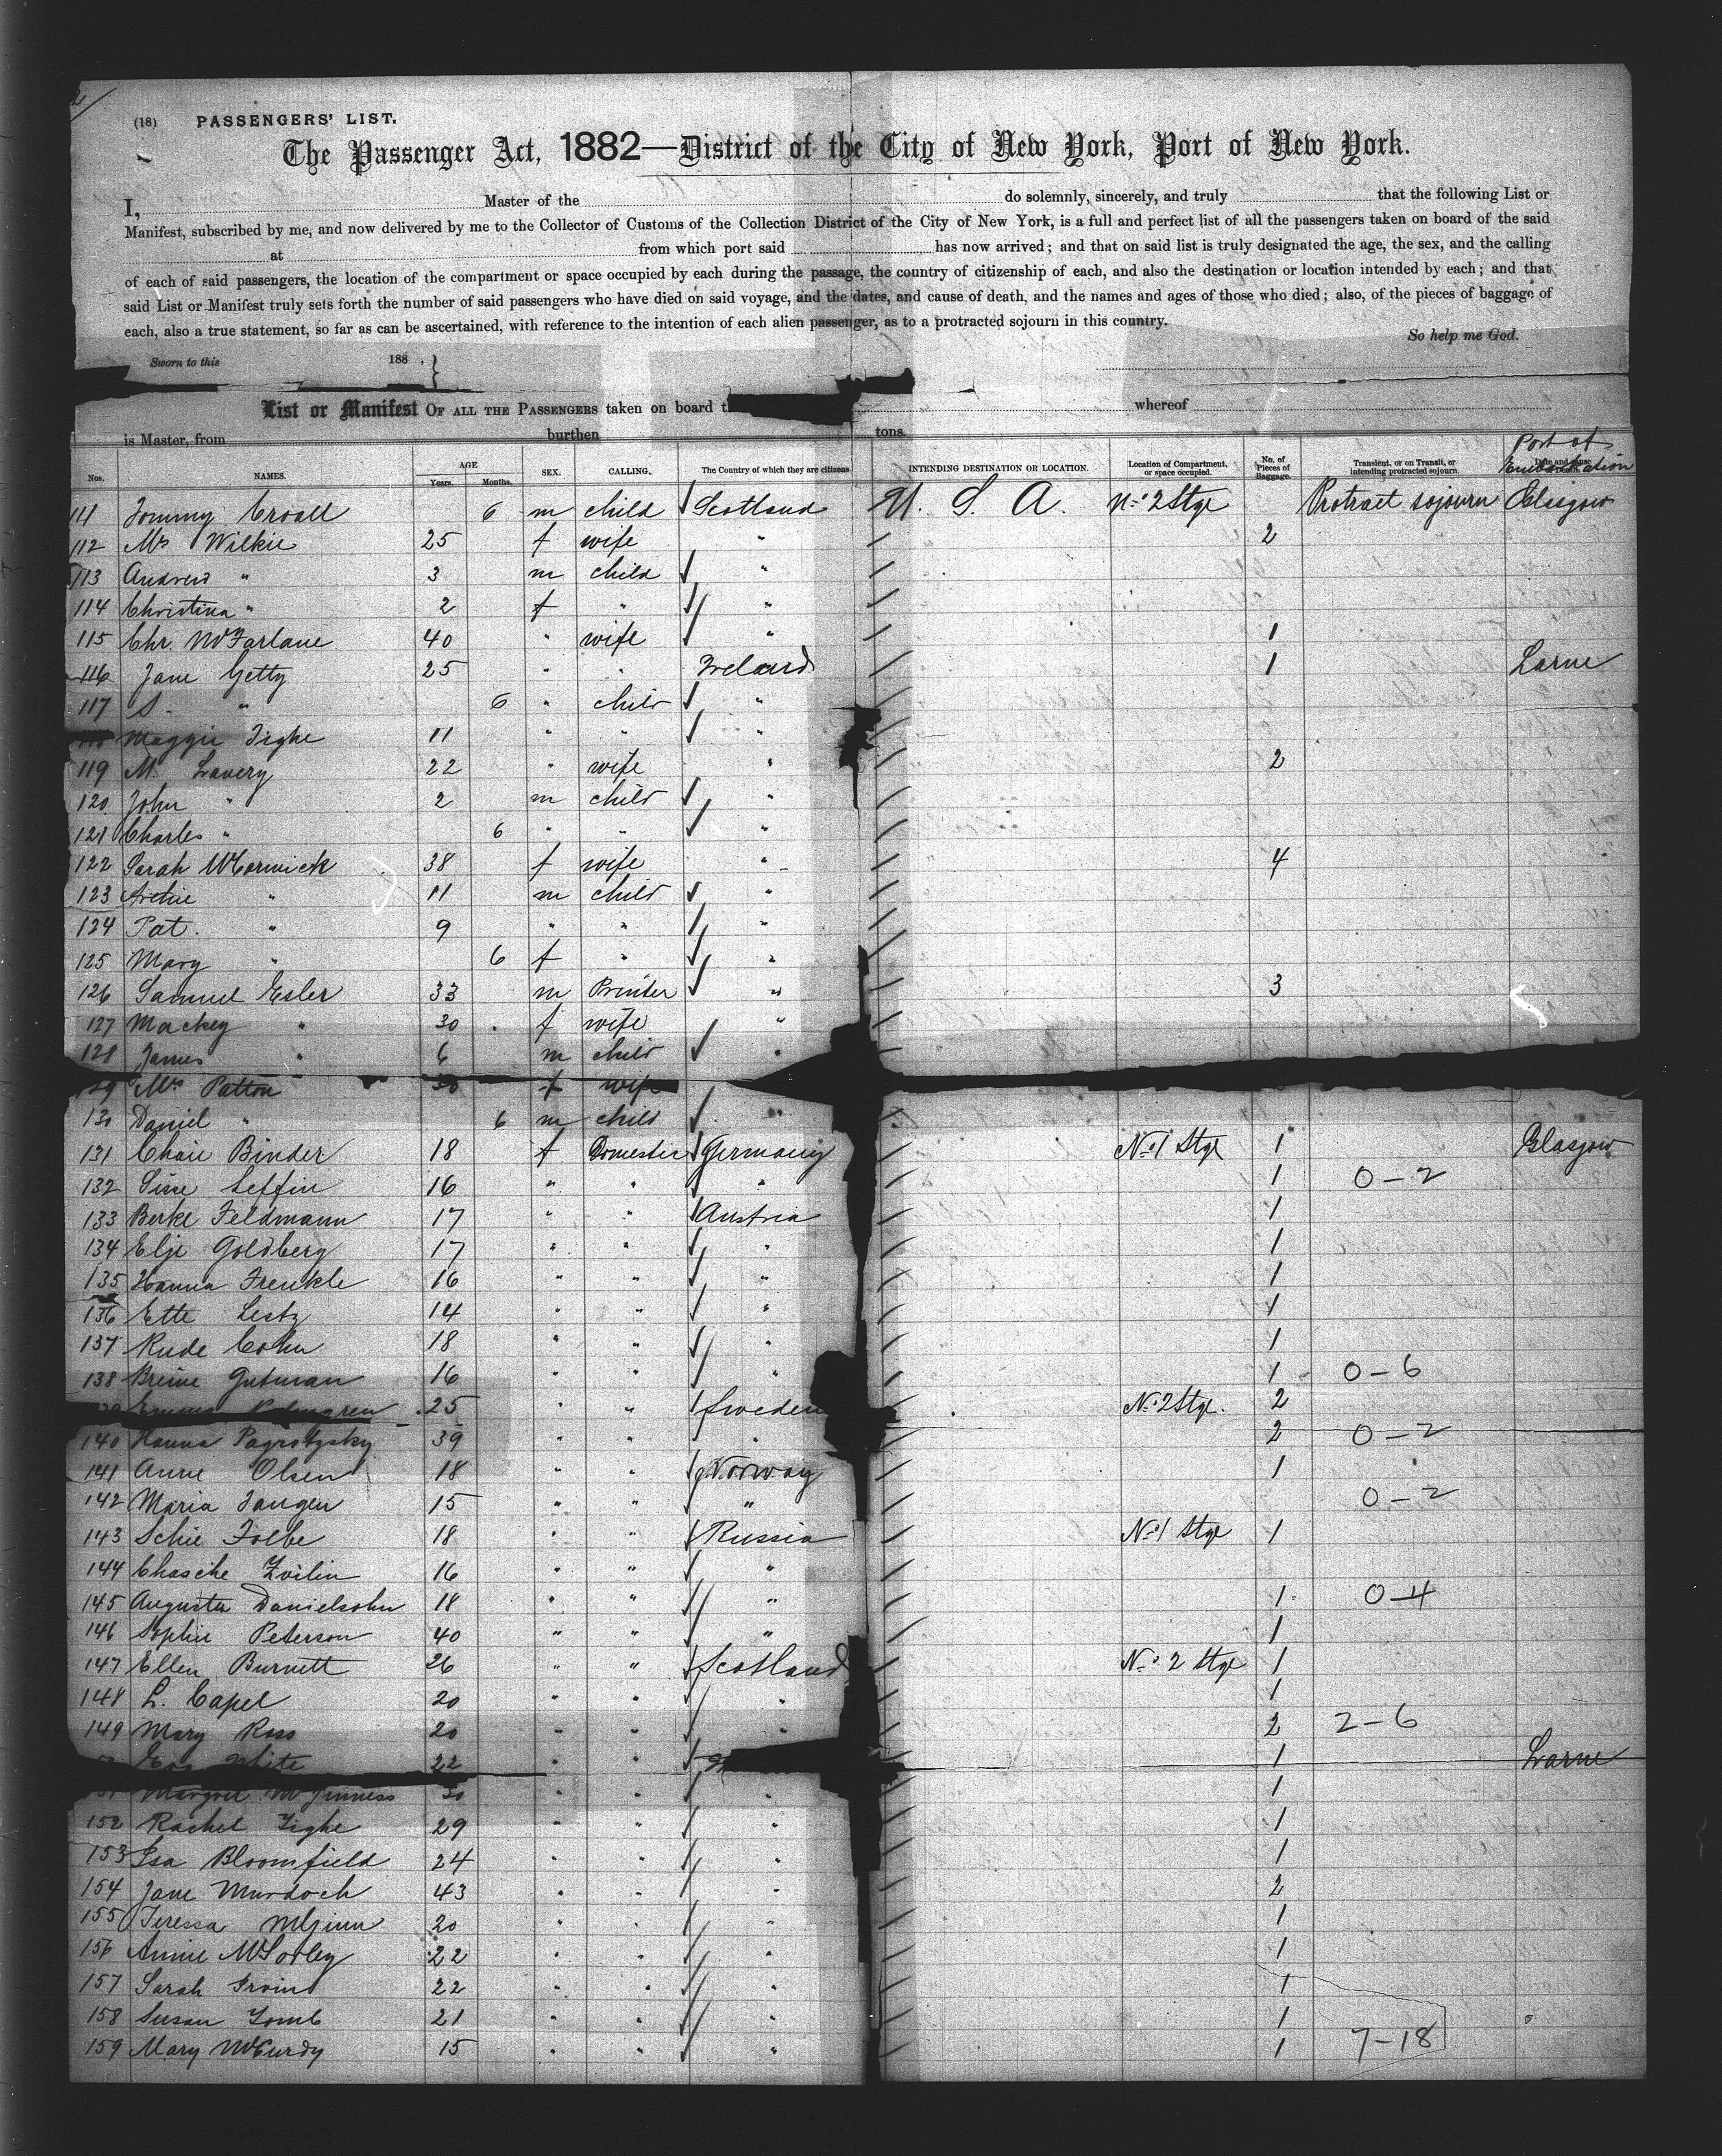 2/
(18) PASSENGERS' LIST.
The Passenger Act, 1882—District of the City of New York, Port of New York.
I, Master of the do solemnly, sincerely, and truly that the following List or
Manifest, subscribed by me, and now delivered by me to the Collector of Customs of the Collection District of the City of New York, is a full and perfect list of all the passengers taken on board of the said
at from which port said has now arrived; and that on said list is truly designated the age, the sex, and the calling
of each of said passengers, the location of the compartment or space occupied by each during the passage, the country of citizenship of each, and also the destination or location intended by each; and that
said List or Manifest truly sets forth the number of said passengers who have died on said voyage, and the dates, and cause of death, and the names and ages of those who died; also, of the pieces of baggage of
each, also a true statement, so far as can be ascertained, with reference to the intention of each alien passenger, as to a protracted sojourn in this country.
So help me God.
Sworn to this 188 , }
List or Manifest OF ALL THE PASSENGERS taken on board whereof
is Master, from burthen tons.
Nos. NAMES. AGE Years. Months. SEX. CALLING. The Country of which they are citizens. INTENDING DESTINATION OR LOCATION. Location of Compartment, or space occupied. No. of Pieces of Baggage. Transient, or on Transit, or intending protracted sojourn. Port of Embarkation
111 Tommy Croall 6 m child Scotland U. S. A. No 2 Stge Protract sojourn Glasgow
112 Mrs Wilkie 25 f wife " 2
113 Andrew " 3 m child "
114 Christina " 2 f " "
115 Chr. McFarlane 40 " wife " 1
116 Jane Getty 25 " " Ireland 1 Larne
117 S. " 6 " child "
Maggie Tighe 11 " " "
119 M. Lavery 22 " wife " 2
120 John " 2 m child "
121 Charles " 6 " " "
122 Sarah McCormick 38 f wife " 4
123 Archie " 11 m child "
124 Pat. " 9 " " "
125 Mary " 6 f " "
126 Samuel Esler 33 m Printer " 3
127 Mackey " 30 f wife "
128 James " 6 m child "
129 Mrs Patton 30 f wife
130 Daniel " 6 m child "
131 Chaie Binder 18 f Domestic Germany No 1 Stge 1 Glasgow
132 Sisse Leffin 16 " " " 1 0-2
133 Berke Feldmann 17 " " Austria 1
134 Elje Goldberg 17 " " " 1
135 Hanna Frenkle 16 " " " 1
136 Ette Lestz 14 " " " 1
137 Rude Cohn 18 " " " 1
138 Breine Gutman 16 " " " 1 0-6
Emma Palmgren 25 " " Sweden No 2 Stge. 2
140 Hanna Pagrotzsky 39 " " " 2 0-2
141 Anne Olsen 18 " " Norway 1
142 Maria Tangen 15 " " " 0-2
143 Schie Folbe 18 " " Russia No 1 Stge 1
144 Chasche Zvilin 16 " " "
145 Augusta Danielsohn 18 " " " 1 0-4
146 Sophie Peterson 40 " " " 1
147 Ellen Burnett 26 " " Scotland No 2 Stge 1
148 L. Capel 20 " " " 1
149 Mary Ross 20 " " " 2 2-6
White 22 " " 1 Larne
Margret McGinness 30 " " " 1
152 Rachel Tighe 29 " " " 1
153 Isa Bloomfield 24 " " " 1
154 Jane Murdoch 43 " " " 2
155 Teressa McGinn 20 " " " 1
156 Annie McSorley 22 " " " 1
157 Sarah Irvine 22 " " " 1
158 Susan Tomb 21 " " " 1
159 Mary McCurdy 15 " " " 1 7-18